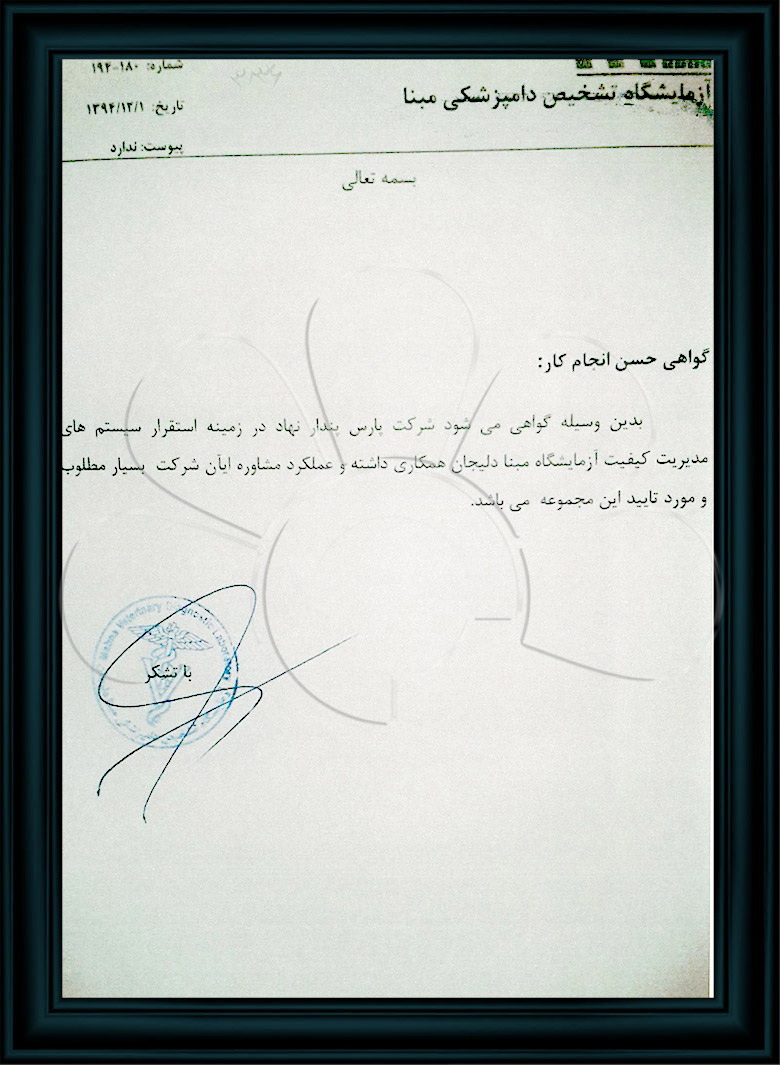 شماره: ۱۹۴-۱۸۰
آزمایشگاه تشخیص دامپزشکی مبنا
تاریخ: ۱۳۹۴/۱۲/۱
پیوست: ندارد
بسمه تعالی
گواهی حسن انجام کار:
بدین وسیله گواهی می شود شرکت پارس پندار نهاد در زمینه استقرار سیستم های
مدیریت کیفیت آزمایشگاه مبنا دلیجان همکاری داشته و عملکرد مشاوره ایآن شرکت بسیار مطلوب
و مورد تایید این مجموعه می باشد.
Veterinary Diagnostic Laboratory
با تشکر